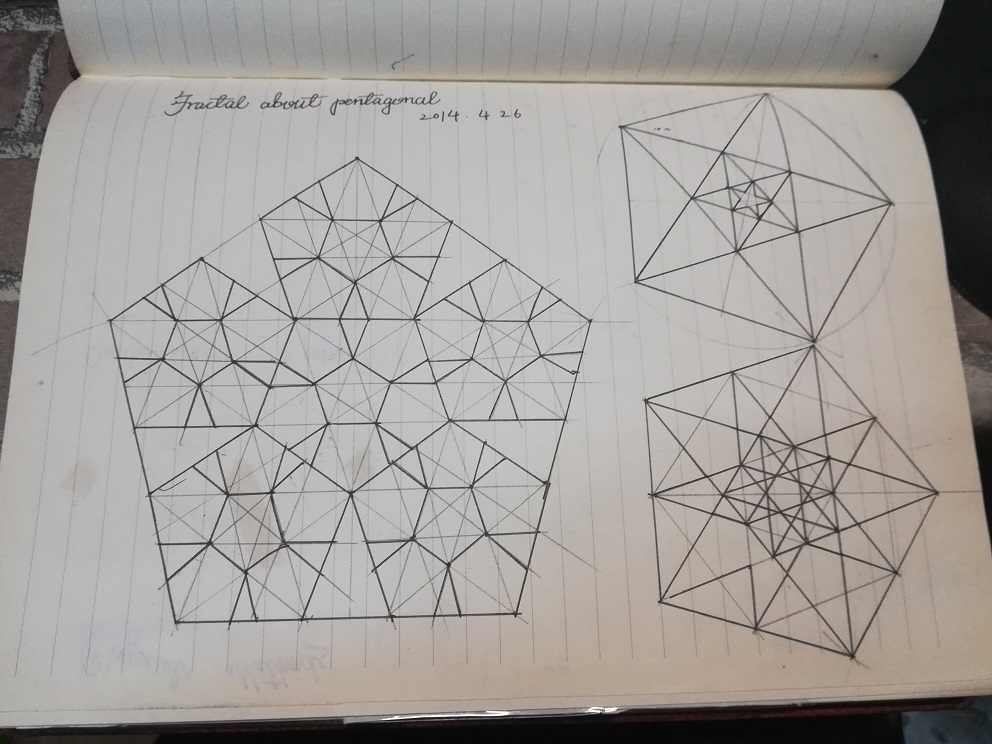 Fractal about pentagonal
2014. 4 26